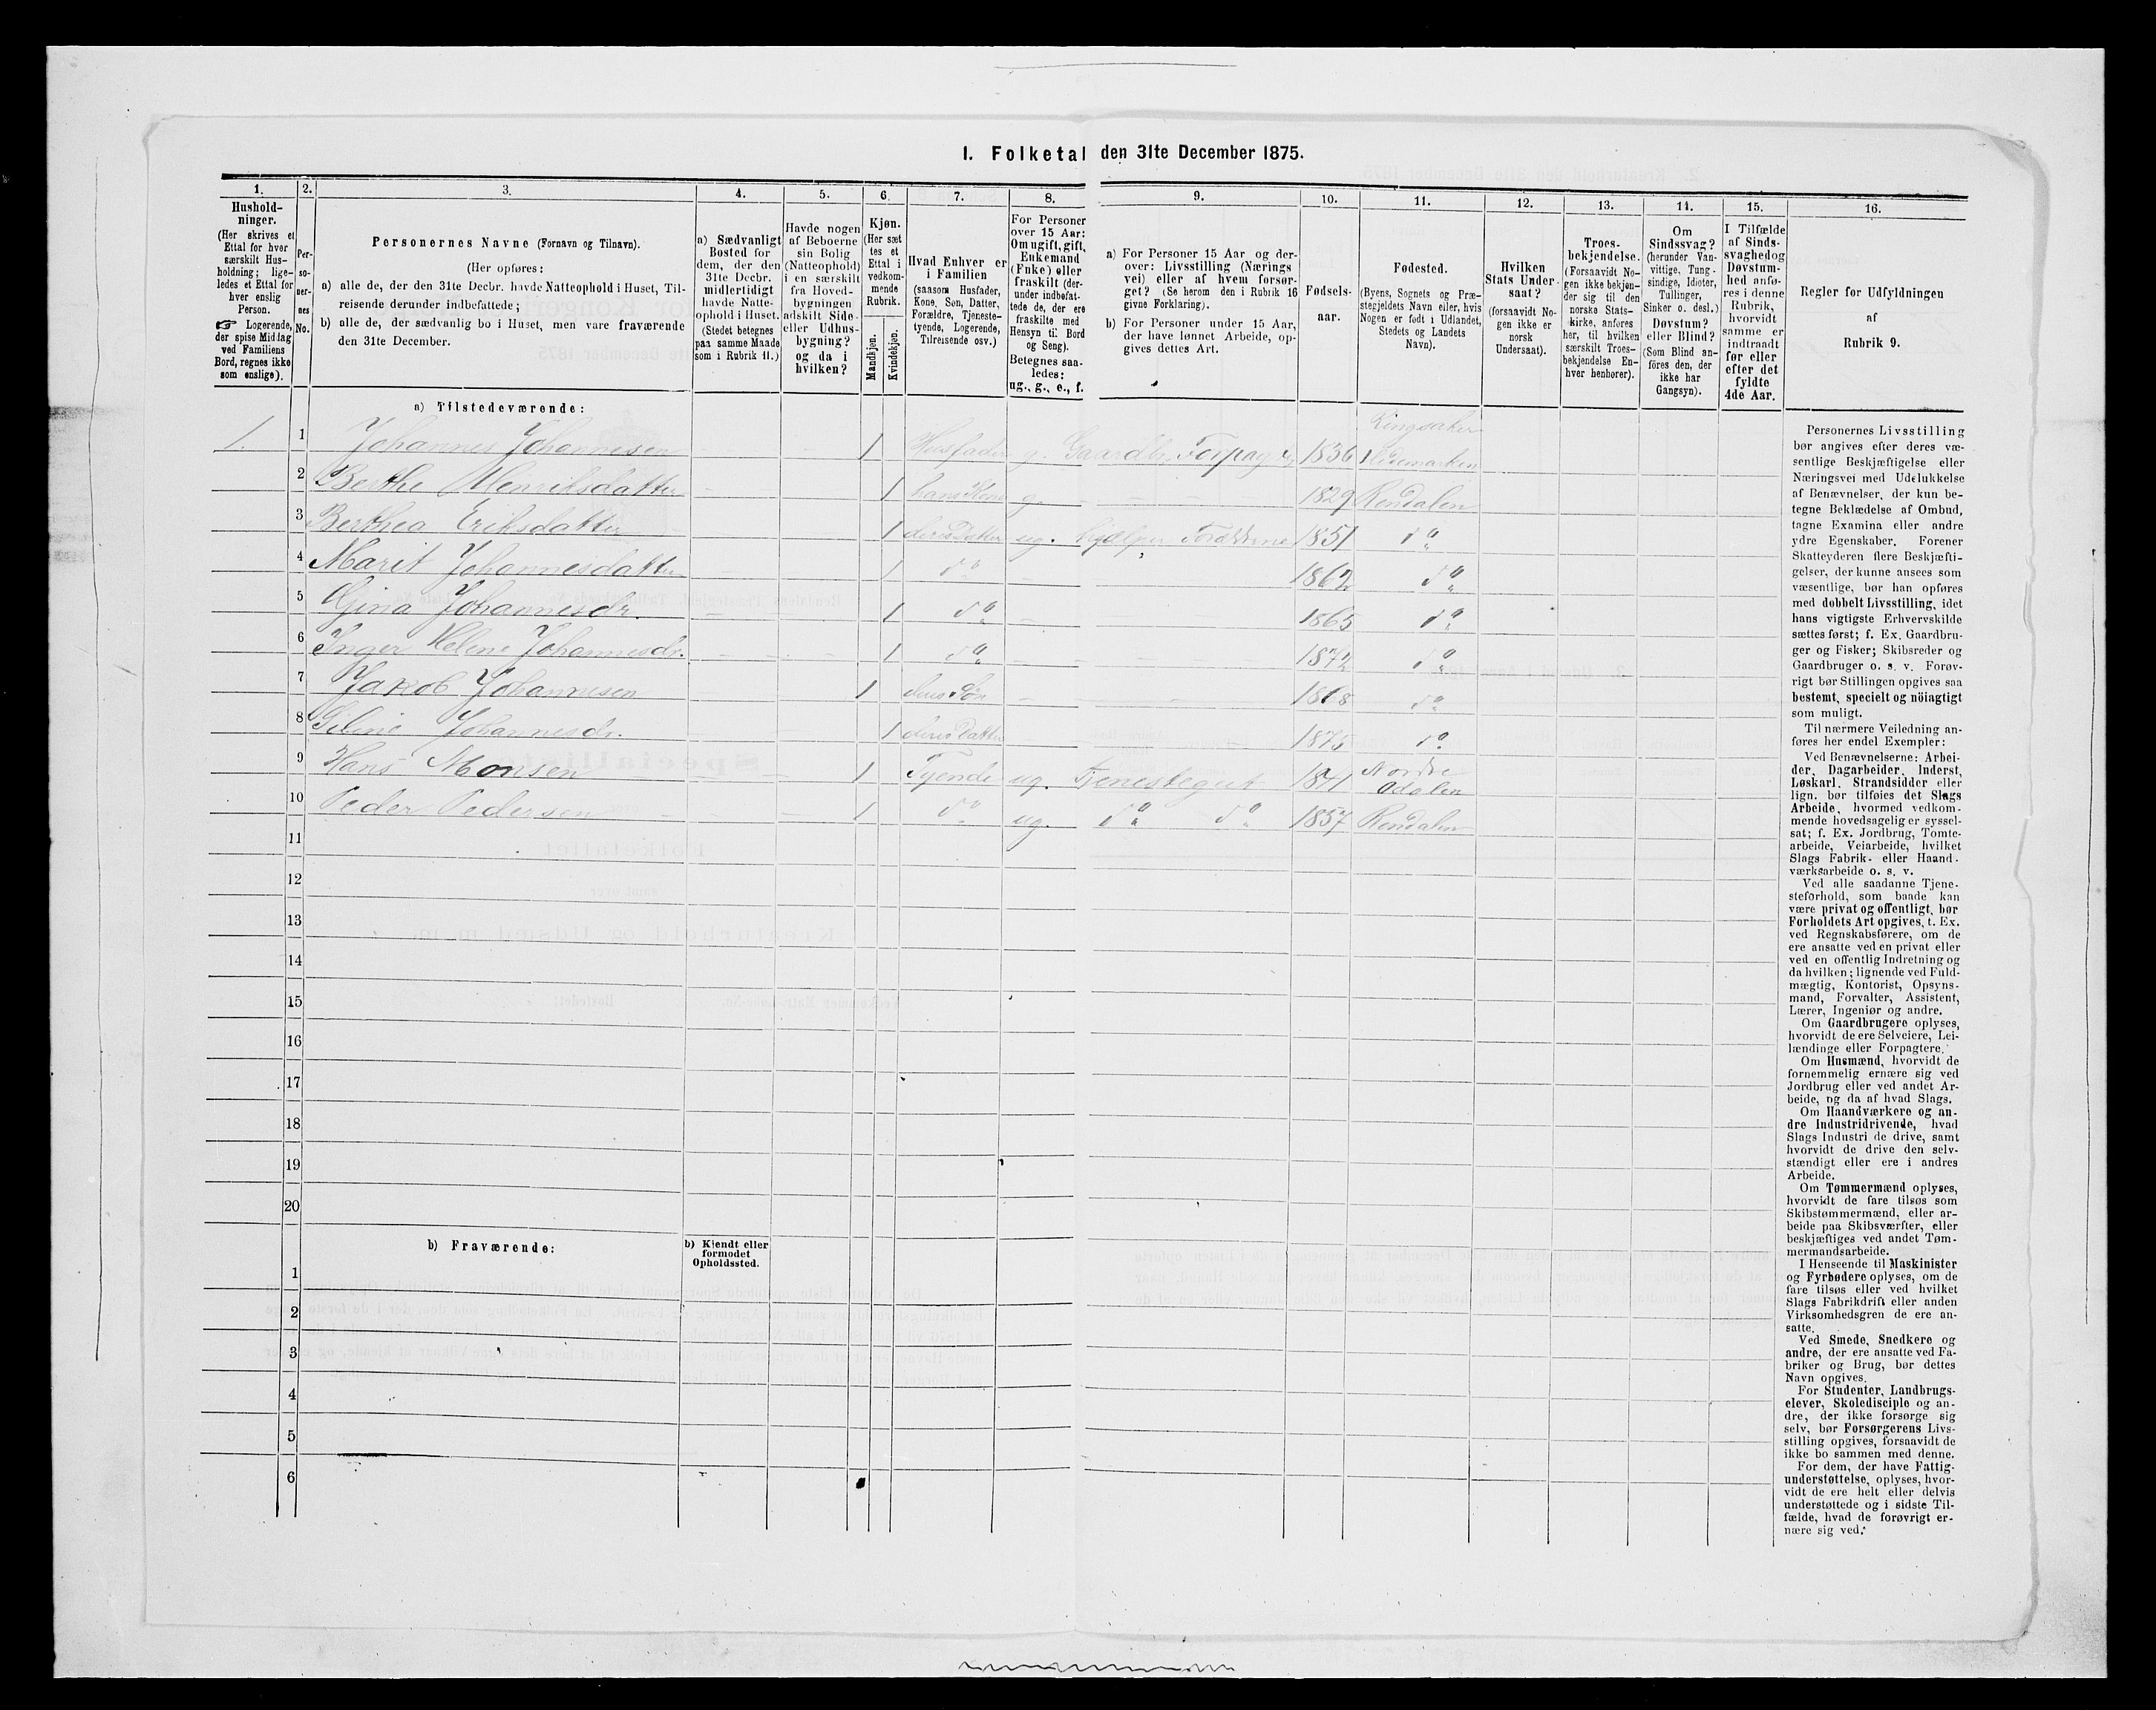 I. Folketal den 31te December 1875.
1.
Hushold-
ninger.
(Her skrives et
Ettal for hver
særskilt Hus-
holdning; lige-
ledes et Ettal for
hver enslig
Person.
☞ Logerende,
der spise Middag
ved Familiens
Bord, regnes ikke
som enslige).
2.
Per-
so-
ner-
nes
No.
3.
Personernes Navne (Fornavn og Tilnavn).
(Her opføres:
a) alle de, der den 31te Decbr. havde Natteophold i Huset, Til-
reisende derunder indbefattede;
b) alle de, der sædvanlig bo i Huset, men vare fraværende
den 31te December.
4.
a) Sædvanligt
Bosted for
dem, der den
31te Decbr.
midlertidigt
havde Natte-
ophold i Huset.
(Stedet betegnes
paa samme Maade
som i Rubrik 11.)
5.
Havde nogen
af Beboerne
sin Bolig
(Natteophold)
i en særskilt
fra Hoved-
bygningen
adskilt Side-
eller Udhus-
bygning?
og da i
hvilken?
6.
Kjøn.
(Her sæt
tes et
Ettal i
vedkom-
mende
Rubrik.
Mandkjøn.
Kvindekjøn.
7.
Hvad Enhver er
i Familien
(saasom Husfader,
Kone, Søn, Datter,
Forældre, Tjeneste-
tyende, Logerende,
Tilreisende osv.)
8.
For Personer
over 15 Aar:
Om ugift, gift,
Enkemand
(Enke) eller
fraskilt (der-
under indbefat-
tede de, der ere
fraskilte med
Hensyn til Bord
og Seng).
Betegnes saa-
ledes:
ug., g., e., f.
9.
a) For Personer 15 Aar og der-
over: Livsstilling (Nærings
vei) eller af hvem forsør-
get? (Se herom den i Rubrik 16
givne Forklaring).
b) For Personer under 15 Aar,
der have lønnet Arbeide, op-
gives dettes Art.
10.
Fødsels-
aar.
11.
Fødested.
(Byens, Sognets og Præ-
stegjeldets Navn eller, hvis
Nogen er født i Udlandet,
Stedets og Landets
Navn).
12.
Hvilken
Stats Under-
saat?
(forsaavidt No-
gen ikke er
norsk
Undersaat).
13.
Troes-
bekjendelse.
(Forsaavidt No-
gen ikke bekjen-
der sig til den
norske Stats-
kirke, anføres
her, til hvilken
særskilt Troes-
bekjendelse En-
hver henhører).
14.
Om
Sindssvag?
(herunder Van-
vittige, Tung-
sindige, Idioter,
Tullinger,
Sinker o. desl.)
Døvstum?
eller Blind?
(Som Blind an-
föres den, der
ikke har
Gangsyn).
15.
I Tilfælde
af Sinds-
svaghed og
Døvstum-
hed anfø-
res i denne
Rubrik,
hvorvidt
samme er
indtraadt
før eller
efter det
fyldte
4de Aar.
16.
Regler for Udfyldningen
af
Rubrik 9.
a) Tilstedeværende:
1. 1 Johannes Johannesen 1 Husfader g. Gaardbr. Forpagter 1836 Ringsaker Hedemarken
2 Berthe Henriksdatter 1 hans Kone g. 1829 Rendalen
3 Berthea Eriksdatter 1 deres Datter ug. hjælper Forældrene 1851 do
4 Marit Johannesdatter 1 do 1862 do
5 Gina Johannesdr. 1 do 1865 do
6 Inger Helene Johannesdr. 1 do 1872 do
7 Jakob Johannesen 1 deres Søn 1868 do
8 Johannesdr. 1 deres Datter 1875 do
9 Hans Monsen 1 Tyende ug. Tjenestegut 1841 Nordre Odalen
10 Peder Pedersen 1 do ug. do do 1857 Rendalen
11
12
13
14
15
16
17
18
19
20
b) Fraværende:
b) Kjendt eller
formodet
Opholdssted.
1
2
3
4
5
6
Personernes Livsstilling
bør angives efter deres væ-
sentlige Beskjæftigelse eller
Næringsvei med Udelukkelse
af Benævnelser, der kun be-
tegne Beklædelse af Ombud,
tagne Examina eller andre
ydre Egenskaber. Forener
Skatteyderen flere Beskjæfti-
gelser, der kunne ansees som
væsentlige, bør han opføres
med dobbelt Livsstilling, idet
hans vigtigste Erhvervskilde
sættes først; f. Ex. Gaardbru-
ger og Fisker; Skibsreder og
Gaardbruger o. s. v. Forøv-
rigt bør Stillingen opgives saa
bestemt, specielt og nöiagtigt
som muligt.
Til nærmere Veiledning an-
føres her endel Exempler:
Ved Benævnelserne: Arbei-
der, Dagarbeider, Inderst,
Løskarl, Strandsidder eller
lign. bør tilføies det Slags
Arbeide, hvormed vedkom-
mende hovedsagelig er syssel-
sat; f. Ex. Jordbrug, Tomte-
arbeide, Veiarbeide, hvilket
Slags Fabrik- eller Haand-
værksarbeide o. s. v.
Ved alle saadanne Tjene-
steforhold, som baade kan
være privat og offentligt, bør
Forholdets Art opgives, t. Ex.
ved Regnskabsførere, om de
ere ansatte ved en privat eller
ved en offentlig Indretning og
da hvilken; lignende ved Fuld-
mægtig, Kontorist, Opsyns-
mand, Forvalter, Assistent,
Lærer, Ingeniør og andre.
Om Gaardbrugere oplyses,
hvorvidt de ere Selveiere, Lei-
lændinge eller Forpagtere.
Om Husmænd, hvorvidt de
fornemmelig ernære sig ved
Jordbrug eller ved andet Ar-
beide, og da af hvad Slags.
Om Haandværkere og an-
dre Industridrivende, hvad
Slags Industri de drive, samt
hvorvidt de drive den selv-
stændigt eller ere i andres
Arbeide.
Om Tømmermænd oplyses,
hvorvidt de fare tilsøs som
Skibstømmermænd, eller ar-
beide paa Skibsværfter, eller
beskjæftiges ved andet Tøm-
mermandsarbeide.
I Henseende til Maskinister
og Fyrbødere oplyses, om de
fare tilsøs eller ved hvilket
Slags Fabrikdrift eller anden
Virksomhedsgren de ere an-
satte.
Ved Smede, Snedkere og
andre, der ere ansatte ved Fa-
briker og Brug, bør dettes
Navn opgives.
For Studenter, Landbrugs-
elever, Skoledisciple og an-
dre, der ikke forsørge sig
selv, bør Forsørgerens Livs-
stilling opgives, forsaavidt de
ikke bo sammen med denne.
For dem, der have Fattig-
understøttelse, oplyses, hvor-
vidt de ere helt eller delvis
understøttede og i sidste Til-
fælde, hvad de forøvrigt er-
nære sig ved.